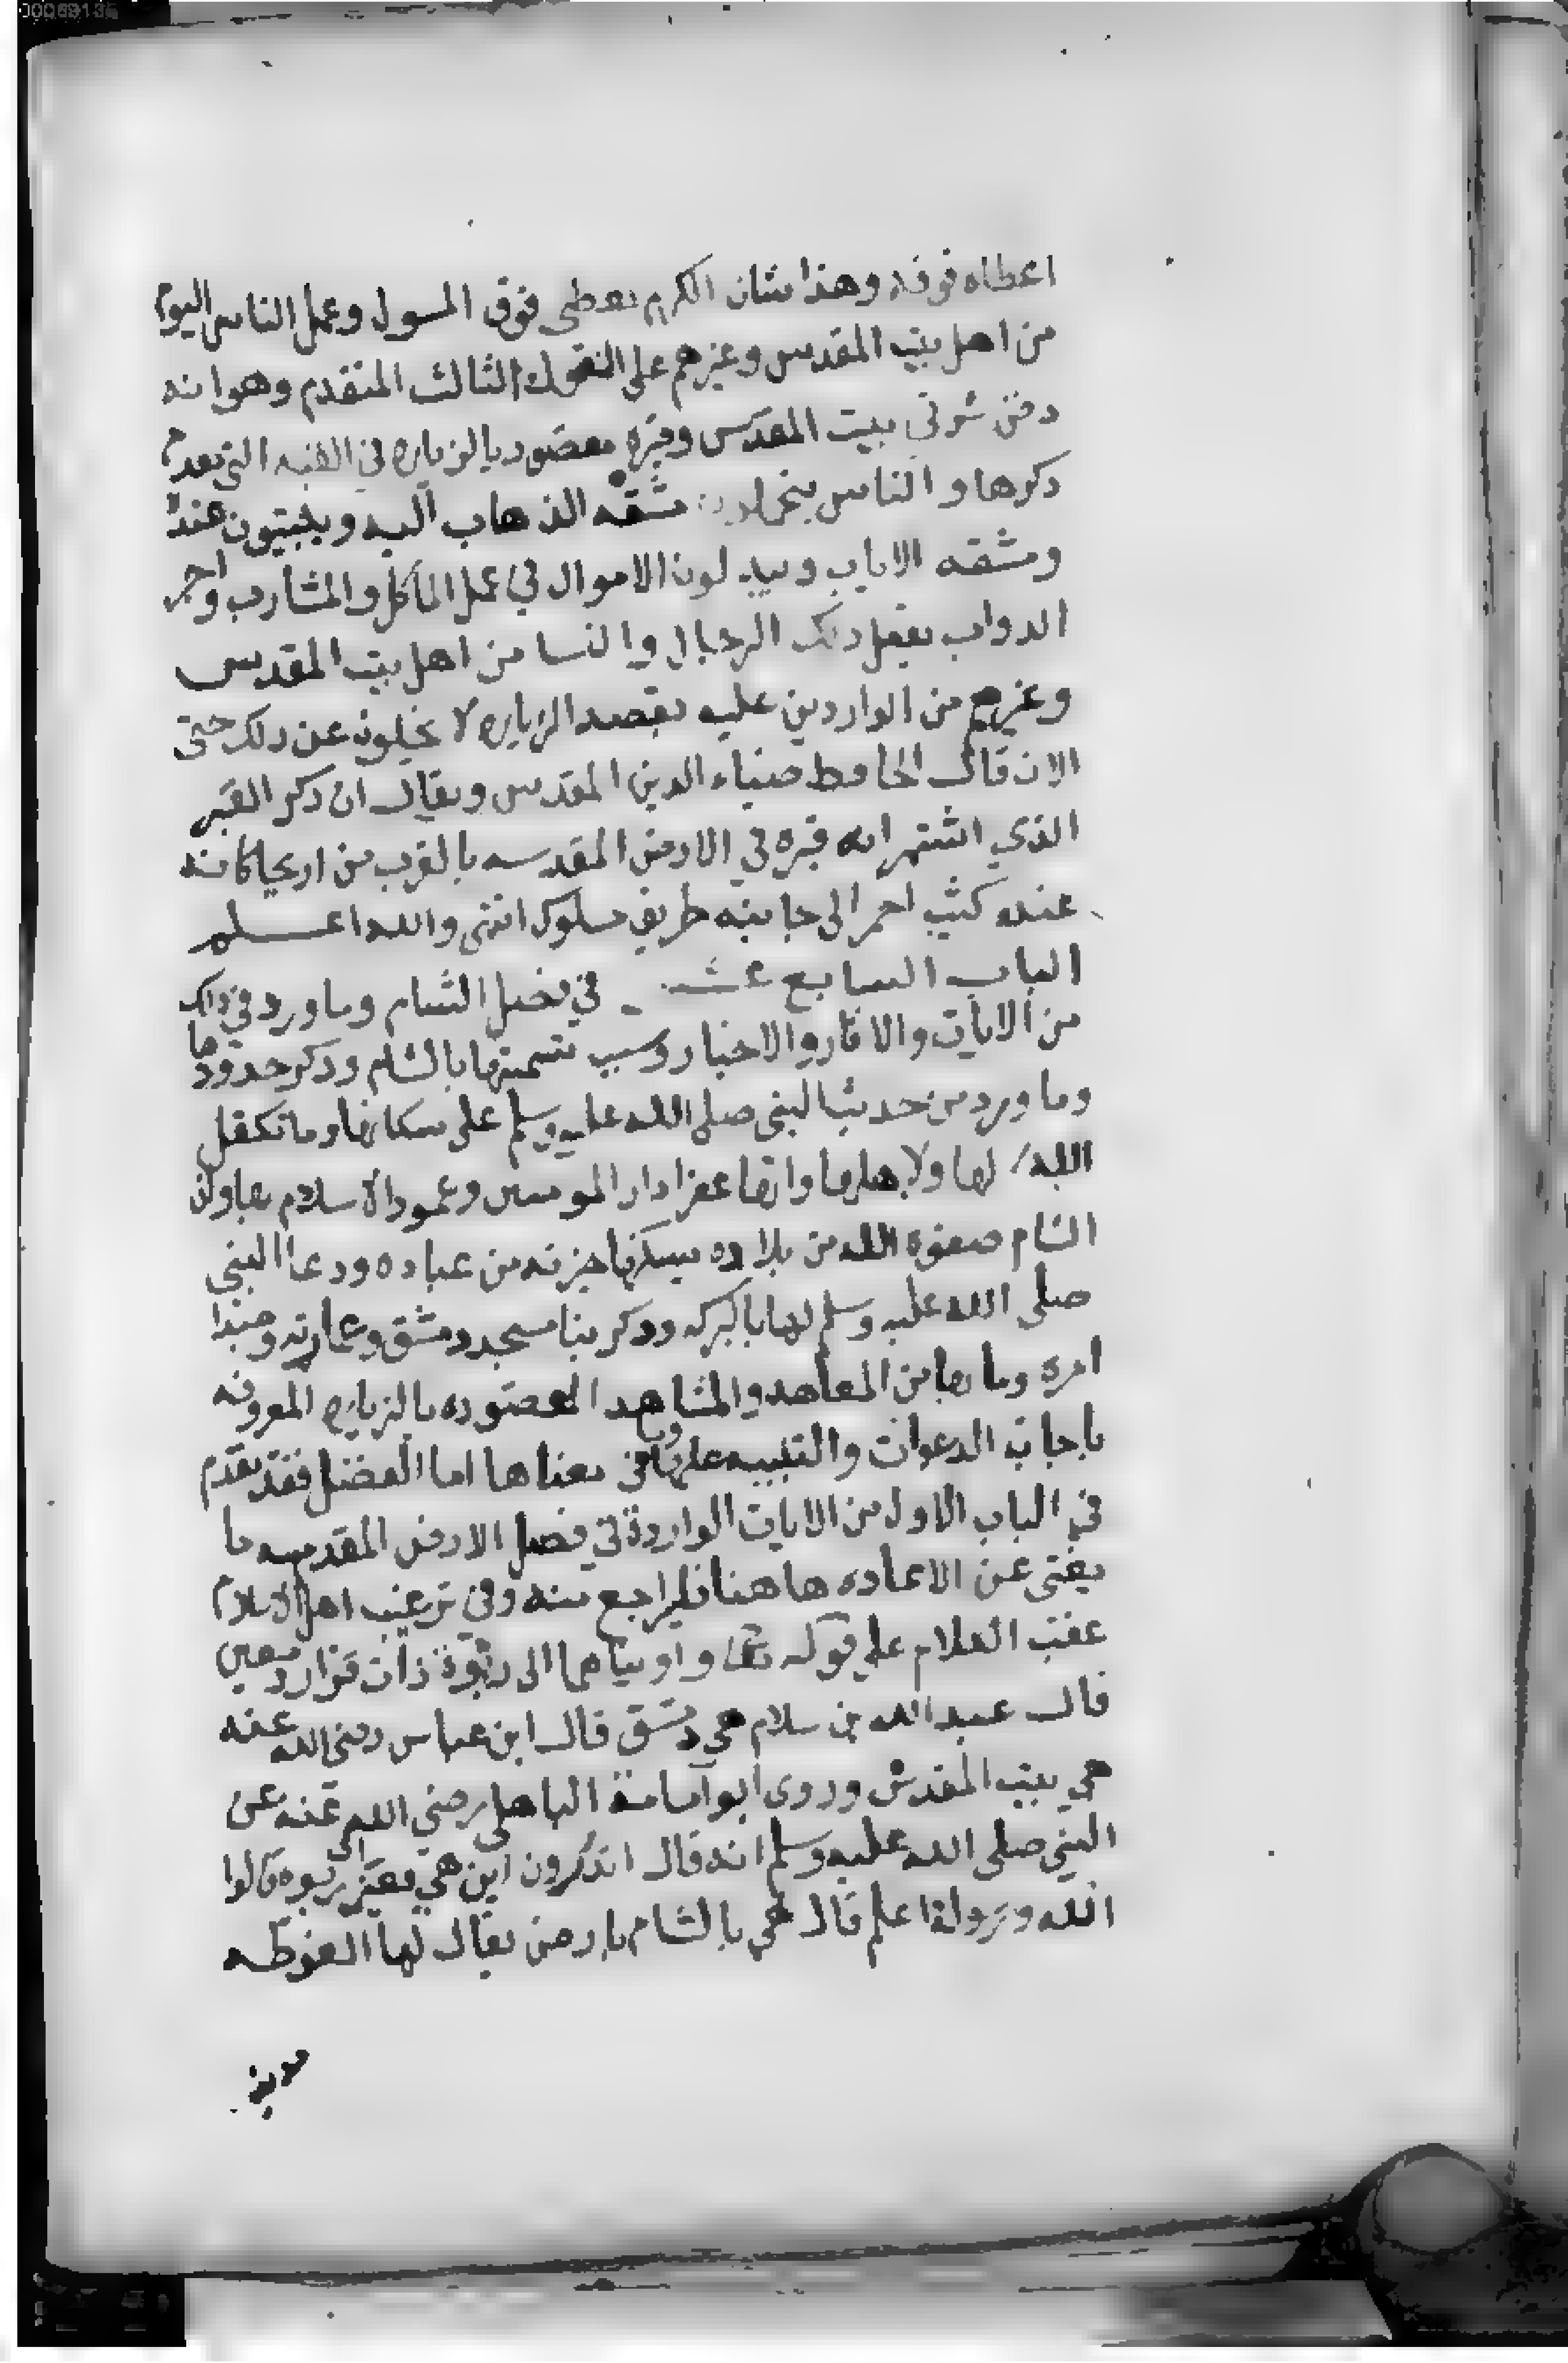 اعطاه فوقه وهذا شان الكريم يعطى فوق المسول وعمل الناس اليوم
من اهل بيت المقدس وغيرهم على القول الثالث المتقدم وهو انه
دفن شرقي بيت المقدس وقبره مقصود بالزياره في القبه التي تقدم
ذكرها والناس يتحملون مشقه الذهاب اليه ويبيتون عنده
ومشقه الاياب ويبدلون الاموال في عمل المآكل والمشارب واجر
الدواب يفعل ذلك الرجال والنسا من اهل بيت المقدس
وغيرهم من الواردين عليه بقصد الزياره لا يخلون عن ذلك حتى
الان قال الحافظ ضياء الدين المقدسي ويقال ان ذكر القبر
الذي اشتهر انه قبره في الارض المقدسه بالقرب من اريحا كانه
عنده كثيب احمر الى جانبه طريق مسلوك انتهى والله اعلم
الباب السابع عشر في فضل الشام وما ورد في ذلك
من الايات والاثار والاخبار وسبب تسميتها بالشام وذكر حدودها
وما ورد من حديث النبي صلى الله عليه وسلم على سكانها وما تكفل
الله لها ولاهلها وانها عقر دار المومنين وعمود الاسلام بها وان
الشام صفوه الله من بلاده يسكنها خيرته من عباده ودعا النبي
صلى الله عليه وسلم لها بالبركه وذكر بنا مسجد دمشق وعمارته ومبدا
امره وما بها من المعاهد والمشاهد المقصوده بالزياره المعروفه
باجابة الدعوات والتنبيه عليها وفي معناها اما الفضل فقد تقدم
في الباب الاول من الايات الواردة في فضل الارض المقدسه ما
يغني عن الاعاده هاهنا فليراجع منه وفي ترغيب اهل الاسلام
عقب الكلام على قوله تعالى واويناهما الى ربوة ذات قرار ومعين
قال عبد الله بن سلام هي دمشق قال ابن عباس رضي الله عنه
هي بيت المقدس وروى ابو امامة الباهلي رضي الله عنه عن
النبي صلى الله عليه وسلم انه قال اتدكرون اين هي يعني ربوه قالوا
الله ورسوله اعلم قال هي بالشام بارض يقال لها الغوطه